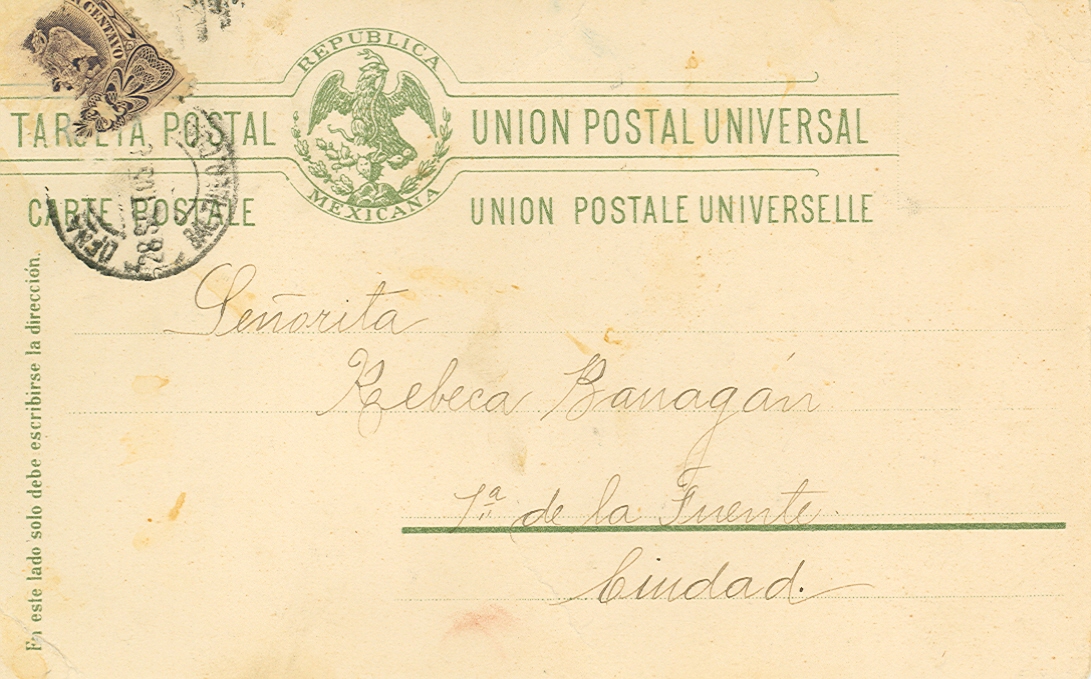 CENTAVO
REPUBLICA
MEXICANA
TARJETA POSTAL
UNION POSTAL UNIVERSAL
CARTE POSTALE
UNION POSTALE UNIVERSELLE
28 SEP 05
En este lado solo debe escribirse la dirección.
Señorita
Rebeca Barragán
1ª de la Fuente
Ciudad.